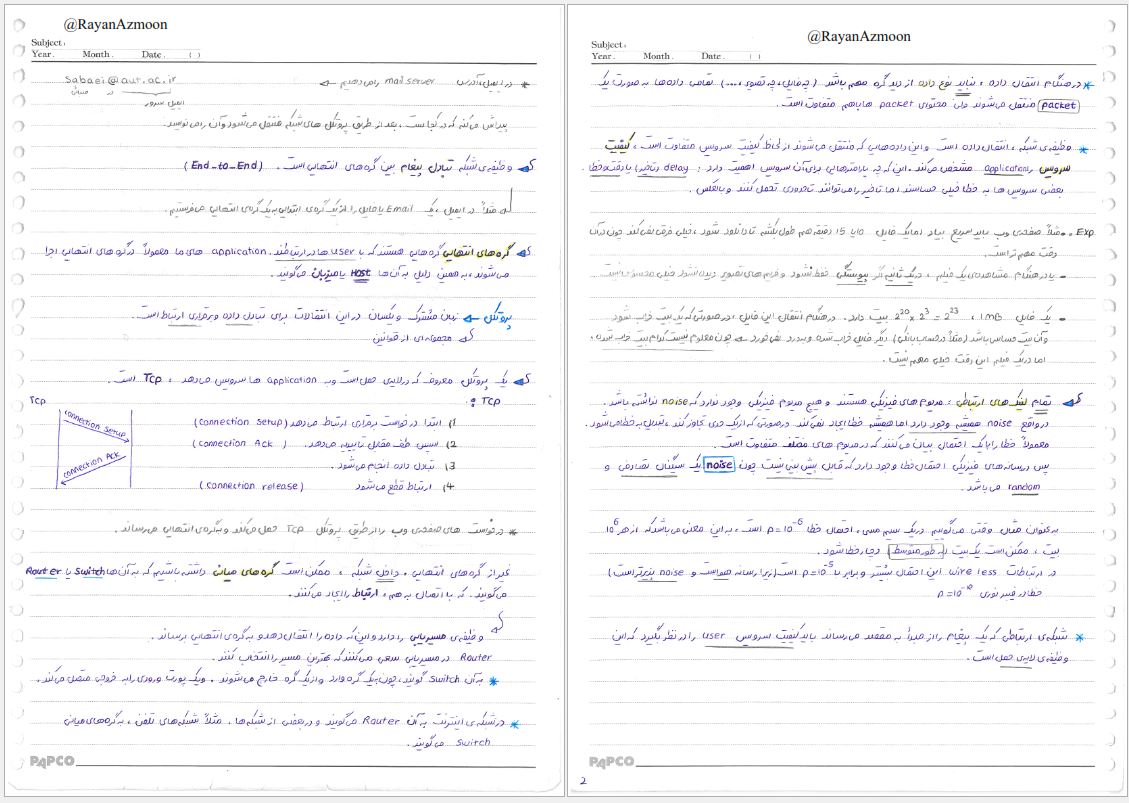 @RayanAzmoon
Subject:
Year. Month. Date. ( )
* در ایمیل، آدرس mail server را می‌دهیم ← Sabaei@aut.ac.ir
در
ایمیل سرور
پیدا می‌کند که در کجاست، بعد از طریق پروتکل های شبکه منتقل می‌شود و آن را می‌نویسد.
وظیفه‌ی شبکه تبادل پیغام بین گره‌های انتهایی است. (End-to-End)
مثلاً در ایمیل، یک Email یا فایل را از یک گره‌ی ابتدایی به یک گره‌ی انتهایی می‌فرستیم.
گره های انتهایی گره‌هایی هستند که با user ها در ارتباطند. application های ما معمولاً در گره های انتهایی اجرا
می‌شوند، به همین دلیل به آن‌ها HOST یا میزبان می‌گویند.
پروتکل ← زبان مشترک و یکسان در این انتقالات برای تبادل داده و برقراری ارتباط است.
مجموعه‌ای از قوانین
یک پروتکل معروف که در لایه‌ی حمل است و به application ها سرویس می‌دهد، TCP است.
TCP :
TCP
connection Setup
connection Ack
1) ابتدا درخواست برقراری ارتباط می‌دهد (connection setup)
2) سپس طرف مقابل تایید می‌دهد. (connection Ack)
3) تبادل داده انجام می‌شود.
4) ارتباط قطع می‌شود (connection release)
* درخواست های صفحه‌ی وب را از طریق پروتکل TCP حمل می‌کند و به گره‌ی انتهایی می‌رساند.
غیر از گره‌های انتهایی، داخل شبکه، ممکن است گره‌های میانی داشته باشیم که به آن‌ها Switch یا Router
می‌گویند. که با اتصال به هم، ارتباط را ایجاد می‌کنند.
وظیفه‌ی مسیریابی را دارد و این که داده را انتقال دهد و به گره‌ی انتهایی برساند.
Router در مسیریابی سعی می‌کند که بهترین مسیر را انتخاب کند.
* به آن Switch گویند، چون به یک گره وارد و از یک گره خارج می‌شوند. و یک پورت ورودی را به خروجی متصل می‌کند.
* در شبکه‌ی اینترنت به آن Router می‌گویند و در بعضی از شبکه‌ها. مثلاً شبکه‌های تلفن، به گره‌های میانی
Switch می‌گویند.
PAPCO
@RayanAzmoon
Subject:
Year. Month. Date. ( )
* در هنگام انتقال داده، نباید نوع داده از دید گره مهم باشد (چه فایل، چه تصویر، ...) تمامی داده‌ها به صورت یک
packet منتقل می‌شوند ولی محتوای packet ها با هم متفاوت است.
* وظیفه‌ی شبکه، انتقال داده است و این داده‌هایی که منتقل می‌شوند از لحاظ کیفیت سرویس متفاوت است، کیفیت
سرویس را application مشخص می‌کند. این که چه پارامترهایی برای آن سرویس اهمیت دارد: delay (تاخیر) یا دقت و خطا.
بعضی سرویس ها به خطا خیلی حساسند اما تاخیر را می‌توانند تاحدودی تحمل کنند و بالعکس.
Exp. مثلاً صفحه‌ی وب باید سریع بیاد اما یک فایل 10 یا 15 دقیقه هم طول بکشه تا دانلود شود، خیلی فرقی نمی‌کند چون در آن
دقت مهم تر است.
- یا در هنگام مشاهده‌ی یک فیلم، در یک ثانیه اگر پیوستگی حفظ نشود و فریم های تصویر دیده نشود خیلی محسوس نیست
- یک فایل 1MB، 2^20 × 2^3 = 2^23 بیت دارد. در هنگام انتقال این فایل، در صورتی که یک بیت خراب شود
و آن بیت حساس باشد (مثلاً در حساب بانکی) دیگر فایل خراب شده و به درد نمی‌خورد ← چون معلوم نیست کدام بیت خراب شده،
اما در یک فیلم این دقت خیلی مهم نیست.
تمام لینک های ارتباطی، مدیوم های فیزیکی هستند و هیچ مدیوم فیزیکی وجود ندارد که noise نداشته باشد.
در واقع noise همیشه وجود دارد اما همیشه خطا ایجاد نمی‌کند. در صورتی که از یک حدی تجاوز کند، تبدیل به خطا می‌شود.
معمولاً خطا را با یک احتمال بیان می‌کنند که در مدیوم های مختلف متفاوت است.
پس در رسانه‌های فیزیکی احتمال خطا وجود دارد که قابل پیش بینی نیست چون noise یک سیگنال تصادفی و
random می‌باشد.
به عنوان مثال وقتی می‌گوییم در یک سیم مسی، احتمال خطا p=10^-6 است، به این معنی می‌باشد که از هر 10^6
بیت، ممکن است یک بیت (به طور متوسط) دچار خطا شود.
در ارتباطات wire less این احتمال بیشتر و برابر با p=10^-5 است (زیرا رسانه هواست و noise پذیرتر است)
خطا در فیبر نوری
* شبکه‌ی ارتباطی که یک پیغام را از مبدأ به مقصد می‌رساند باید کیفیت سرویس user را در نظر بگیرد که این
وظیفه‌ی لایه‌ی حمل است.
PAPCO
2